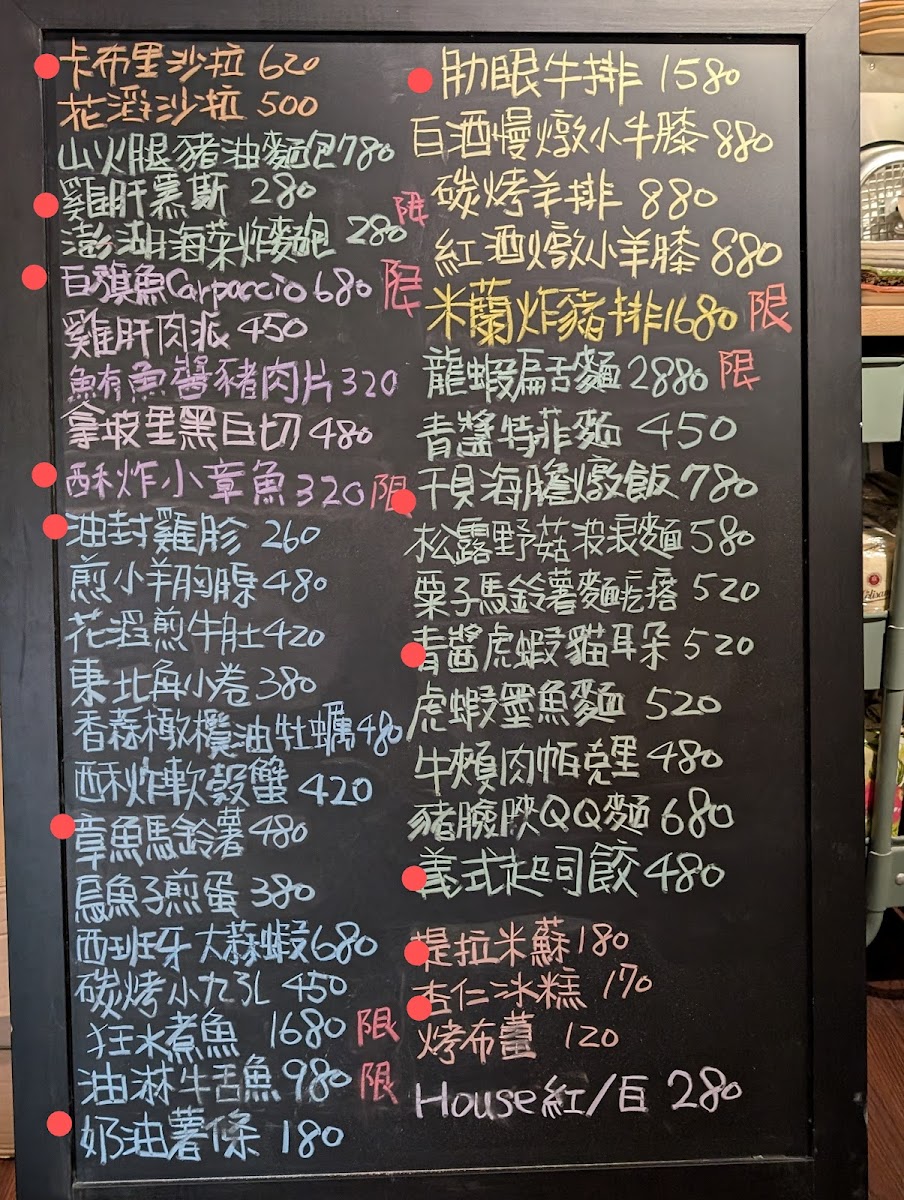 卡布里沙拉 620
花滔沙拉 500
山火腿豬油麵包780
雞肝慕斯 280
澎湖海菜炸麵包 280 限
白旗魚Carpaccio 680 限
雞肝肉派 450
鮪魚醬豬肉片 320
拿坡里黑白切 480
酥炸小章魚 320 限
油封雞胗 260
煎小羊胸腺 480
花滔煎牛肚 420
東北角小卷 380
香蒜橄欖油牡蠣 480
酥炸軟殼蟹 420
章魚馬鈴薯 480
烏魚子煎蛋 380
西班牙大蒜蝦 680
碳烤小九孔 450
狂水煮魚 1680 限
油淋牛舌魚 980 限
奶油薯條 180
肋眼牛排 1580
白酒慢燉小牛膝 880
碳烤羊排 880
紅酒燉小羊膝 880
米蘭炸豬排 1680 限
龍蝦扁舌麵 2880 限
青醬特菲麵 450
干貝海膽燉飯 780
松露野菇波浪麵 580
栗子馬鈴薯麵疙瘩 520
青醬虎蝦貓耳朵 520
虎蝦墨魚麵 520
牛頰肉帕克里 480
豬臉頰QQ麵 680
義式起司餃 480
提拉米蘇 180
杏仁冰糕 170
烤布蕾 120
House 紅/白 280